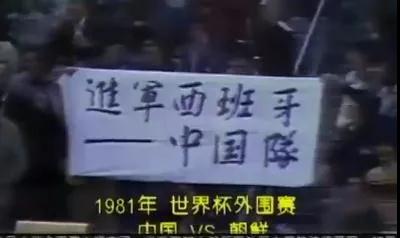 進軍西班牙
——中国隊
1981年 世界杯外围赛
中国 VS 朝鲜